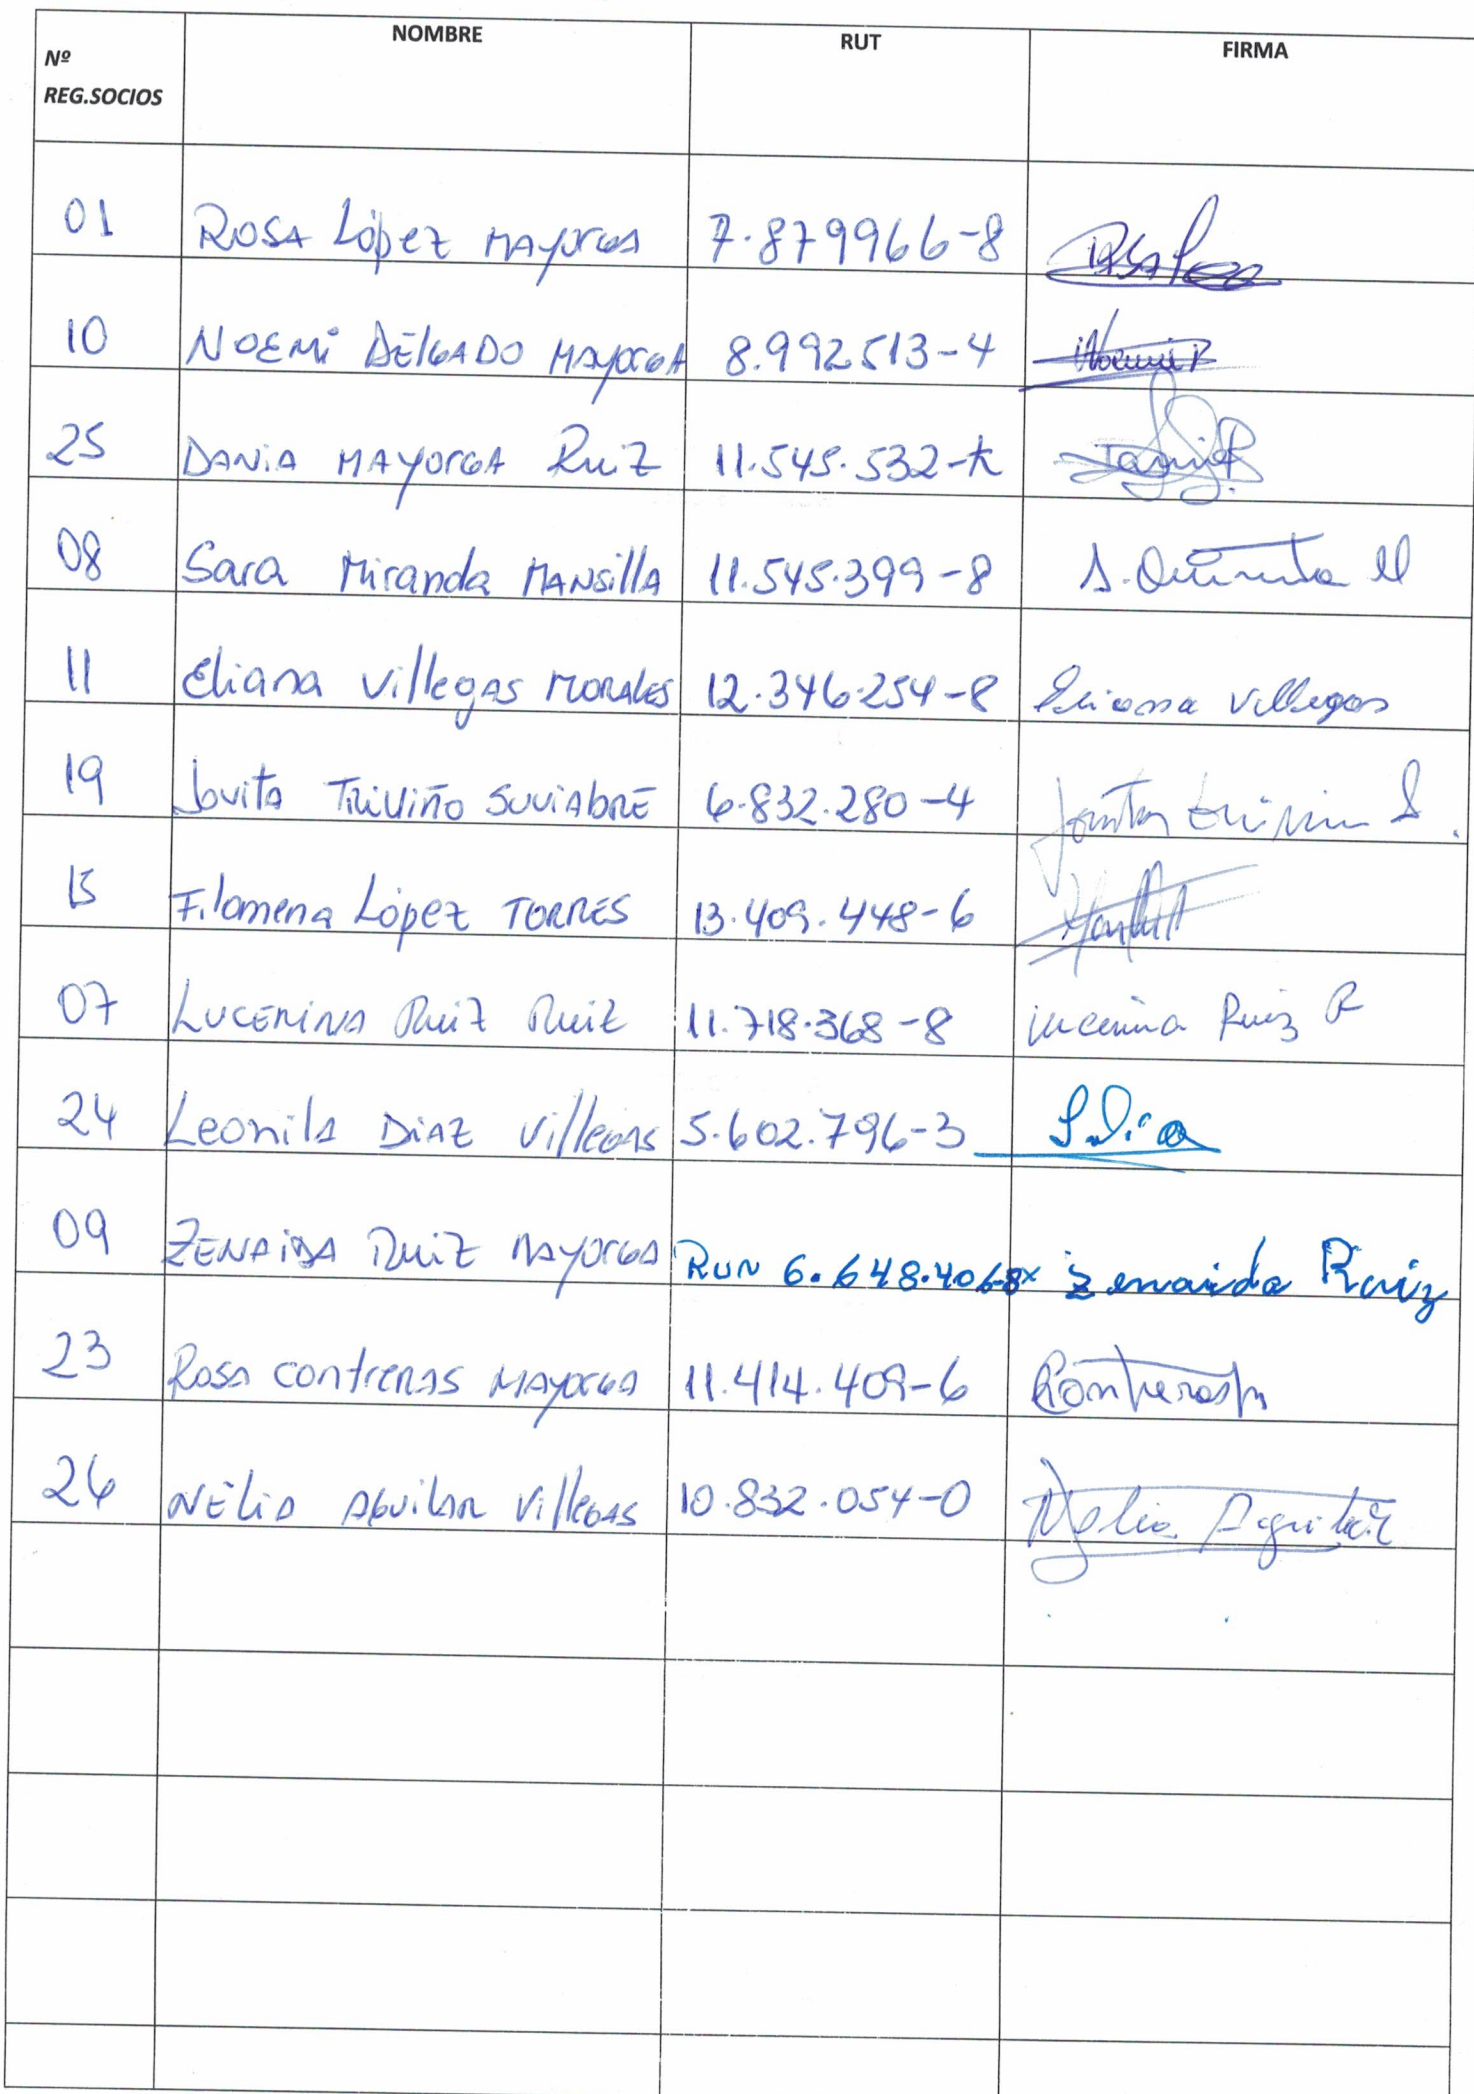 Nº REG.SOCIOS NOMBRE RUT FIRMA
01 ROSA López MAYORGA 7.879966-8
10 NOEMí DELGADO MAYORGA 8.992513-4 Noemí D
25 DANIA MAYORGA RuiZ 11.545.532-K
08 Sara Miranda MANSillA 11.545.399-8
11 Eliana Villegas MORALES 12.346.254-8 Eliana Villegas
19 Jovita TRIVIÑO SUVIABRE 6.832.280-4
15 Filomena López TORRES 13.409.448-6
07 LUCERINA Ruiz Ruiz 11.718.368-8 Lucerina Ruiz R
24 Leonila DIAZ Villegas 5.602.796-3
09 ZENAIDA RuiZ MAYORGA RUN 6.648.406-8x Zenaida Ruiz
23 Rosa contreras MAYORGA 11.414.409-6 RContrerasM
26 NÉLIA AGUILAR Villegas 10.832.054-0 Nelia Aguilar